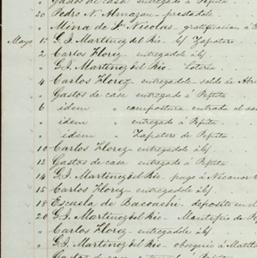 " Gastos de casa entregado á Pepita
20 Pedro N. Almazan - prestadole
" Mina de S. Nicolas, gratificacion á
Mayo 1º G. J. Martinez del Rio. s/ Zapatero
2 Carlos Florez - entregadole á s/
" G. J. Martinez del Rio. Loteria
4 Carlos Florez - entregadole - saldo de
" Gastos de casa entregado á Pepita
6 idem " compostura entrada al
" idem " entregado á Pepita
" idem " Zapatero de Pepita
10 Carlos Florez - entregadole á s/
12 Gastos de casa entregado á Pepita
14 G. J. Martinez del Rio - pago á Nicanor
15 Carlos Florez - entregadole á s/
18 Escuela de Bacoachi - deposito en
20 G. J. Martinez del Rio - de
" Carlos Florez - entregadole á s/
" G. J. Martinez del Rio - obsequio á
" Gastos de casa entregado á Pepita